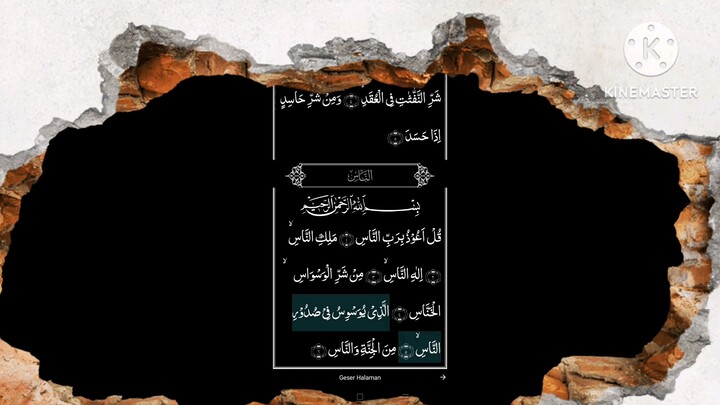 KINEMASTER
شَرِّ النَّفّٰثٰتِ فِى الْعُقَدِ ۝٤ وَمِنْ شَرِّ حَاسِدٍ
اِذَا حَسَدَ ۝٥
النَّاس
بِسْمِ اللّٰهِ الرَّحْمٰنِ الرَّحِيْمِ
قُلْ اَعُوْذُ بِرَبِّ النَّاسِ ۝١ مَلِكِ النَّاسِۙ
۝٢ اِلٰهِ النَّاسِۙ ۝٣ مِنْ شَرِّ الْوَسْوَاسِ ۙ
الْخَنَّاسِ ۝٤ الَّذِيْ يُوَسْوِسُ فِيْ صُدُوْرِ
النَّاسِۙ ۝٥ مِنَ الْجِنَّةِ وَالنَّاسِ ۝٦
Geser Halaman